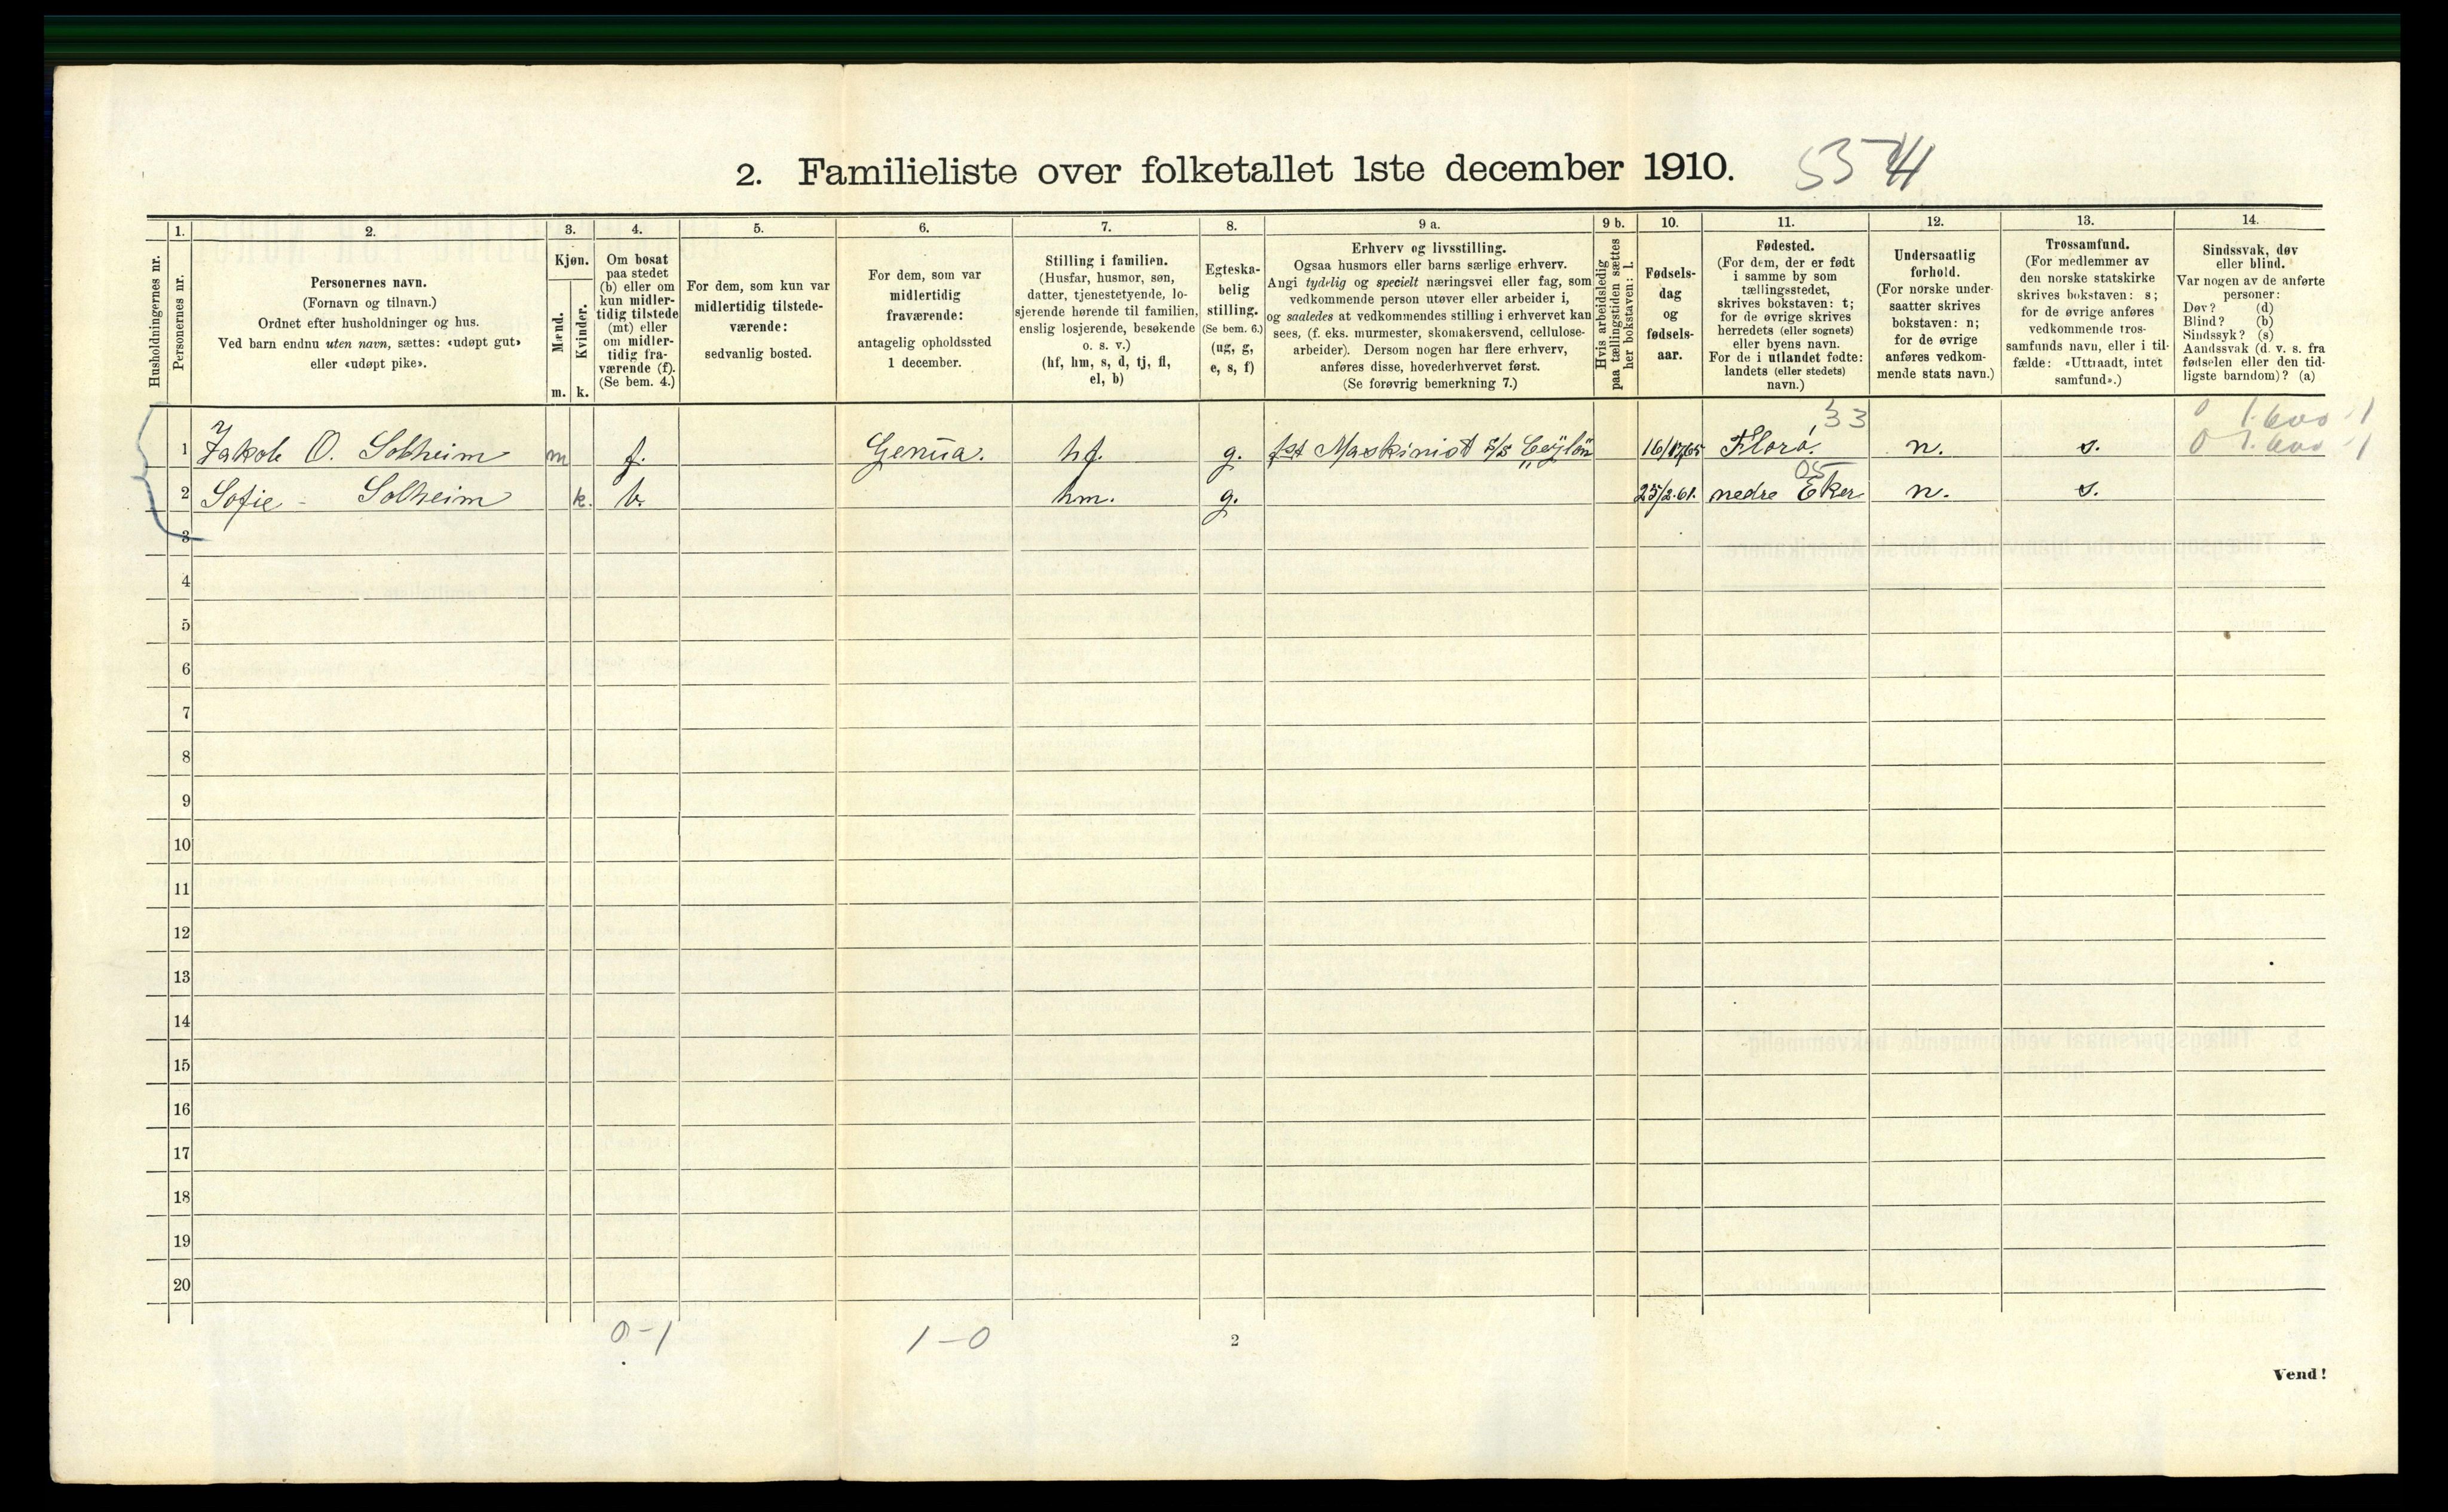 2. Familieliste over folketallet 1ste december 1910.
1. 2. 3. 4. 5. 6. 7. 8. 9 a. 9 b. 10. 11. 12. 13. 14.
Husholdningernes nr.
Personernes nr.
Personernes navn.
(Fornavn og tilnavn.)
Ordnet efter husholdninger og hus.
Ved barn endnu uten navn, sættes: «udøpt gut»
eller «udøpt pike».
Kjøn.
Mænd.
Kvinder.
m. k.
Om bosat
paa stedet
(b) eller om
kun midler-
tidig tilstede
(mt) eller
om midler-
tidig fra-
værende (f).
(Se bem. 4.)
For dem, som kun var
midlertidig tilstede-
værende:
sedvanlig bosted.
For dem, som var
midlertidig
fraværende:
antagelig opholdssted
1 december.
Stilling i familien.
(Husfar, husmor, søn,
datter, tjenestetyende, lo-
sjerende hørende til familien,
enslig losjerende, besøkende
o. s. v.)
(hf, hm, s, d, tj, fl,
el, b)
Egteska-
belig
stilling.
(Se bem. 6.)
(ug, g,
e, s, f)
Erhverv og livsstilling.
Ogsaa husmors eller barns særlige erhverv.
Angi tydelig og specielt næringsvei eller fag, som
vedkommende person utøver eller arbeider i,
og saaledes at vedkommendes stilling i erhvervet kan
sees, (f. eks. murmester, skomakersvend, cellulose-
arbeider). Dersom nogen har flere erhverv,
anføres disse, hovederhvervet først.
(Se forøvrig bemerkning 7.)
Hvis arbeidsledig
paa tællingstiden sættes
her bokstaven: l.
Fødsels-
dag
og
fødsels-
aar.
Fødested.
(For dem, der er født
i samme by som
tællingsstedet,
skrives bokstaven: t;
for de øvrige skrives
herredets (eller sognets)
eller byens navn.
For de i utlandet fødte:
landets (eller stedets)
navn.)
Undersaatlig
forhold.
(For norske under-
saatter skrives
bokstaven: n;
for de øvrige
anføres vedkom-
mende stats navn.)
Trossamfund.
(For medlemmer av
den norske statskirke
skrives bokstaven: s;
for de øvrige anføres
vedkommende tros-
samfunds navn, eller i til-
fælde: «Uttraadt, intet
samfund».)
Sindssvak, døv
eller blind.
Var nogen av de anførte
personer:
Døv? (d)
Blind? (b)
Sindssyk? (s)
Aandssvak (d. v. s. fra
fødselen eller den tid-
ligste barndom)? (a)
33
1 Jakob O. Solheim m f. Genua. hf. g. 1st Maskinist S/S Ceylon Florø. n. s.
05
2 Sofie - Solheim k. b. hm. g. 25/2.61. nedre Eker n. s.
3
4
5
6
7
8
9
10
11
12
13
14
15
16
17
18
19
20
0-1 1-0
2
Vend!